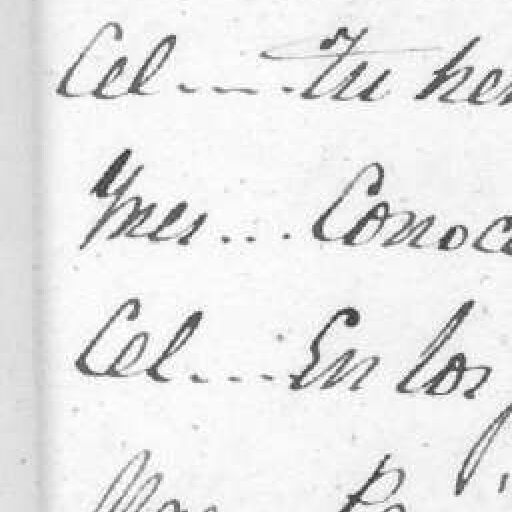 Cel.... Tu her
Ynes... Conoce
Cel.... En los